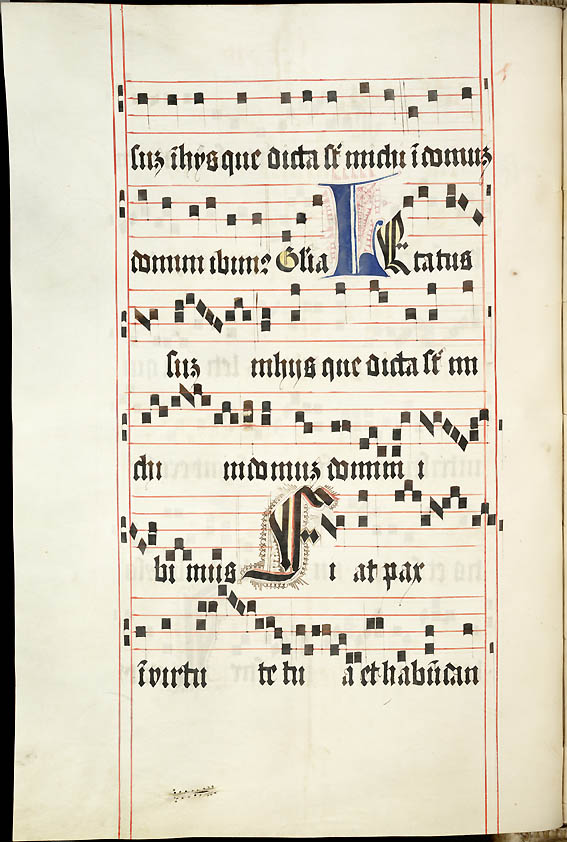 suꝫ ı̄ hys que dicta st̄ michi ı̄ domuꝫ
domini ibim? Gl̄ia Letatus
suꝫ inhijs que dicta st̄ mi
chi indomuꝫ domini i
bi mus Fi at pax
ı̄ virtu te tu a et habūdan